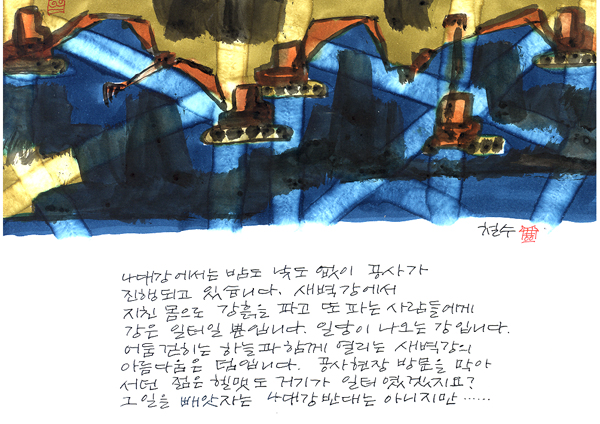 철수
4대강에서는 밤도 낮도 없이 공사가
진행되고 있습니다. 새벽강에서
지친 몸으로 강흙을 파고 또 파는 사람들에게
강은 일터일 뿐입니다. 일당이 나오는 강입니다.
어둠 걷히는 하늘과 함께 열리는 새벽강의
아름다움은 덤입니다. 공사현장 방문을 막아
서던 젊은 헬멧도 거기가 일터였겠지요?
그 일을 빼앗자는 4대강반대는 아니지만……